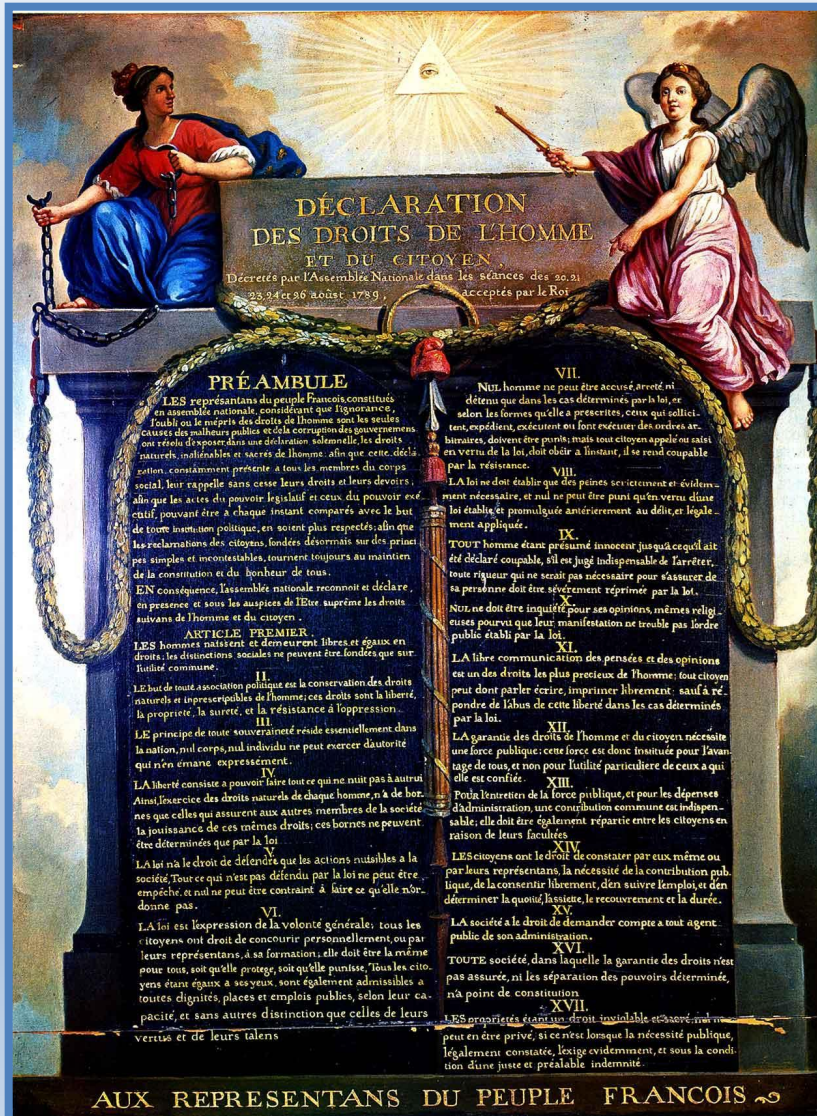 DÉCLARATION
DES DROITS DE L'HOMME
ET DU CITOYEN,
Décretés par l'Assemblée Nationale dans les séances des 20, 21
23, 24 et 26 aoûst 1789, acceptés par le Roi
PRÉAMBULE
LES représantans du peuple François, constitués
en assemblée nationale, considérant que l'ignorance,
l'oubli ou le mépris des droits de l'homme sont les seules
causes des malheurs publics et de la corruption des gouvernemens
ont résolu d'exposer, dans une déclaration solemnelle, les droits
naturels, inaliénables et sacrés de l'homme; afin que cette, décla
ration, constamment présente a tous les membres du corps
social, leur rappelle sans cesse leurs droits et leurs devoirs;
afin que les actes du pouvoir legislatif et ceux du pouvoir exé
cutif, pouvant être à chaque instant comparés avec le but
de toute institution politique, en soient plus respectés; afin que
les reclamations des citoyens, fondées désormais sur des princi
pes simples et incontestables, tournent toujours au maintien
de la constitution et du bonheur de tous.
EN conséquence, l'assemblée nationale reconnoit et déclare,
en presence et sous les auspices de l'Etre suprême les droits
suivans de l'homme et du citoyen.
ARTICLE PREMIER.
LES hommes naissent et demeurent libres et égaux en
droits; les distinctions sociales ne peuvent être fondées que sur
l'utilité commune.
II.
LE but de toute association politique est la conservation des droits
naturels et inprescriptibles de l'homme; ces droits sont la liberté,
la propriete, la sureté, et la résistance à l'oppression.
III.
LE principe de toute souveraineté réside essentiellement dans
la nation, nul corps, nul individu ne peut exercer d'autorité
qui n'en émane expressément.
IV.
LA liberté consiste a pouvoir faire tout ce qui ne nuit pas à autrui
Ainsi, l'exercice des droits naturels de chaque homme, n'a de bor-
nes que celles qui assurent aux autres membres de la société
la jouissance de ces mêmes droits; ces bornes ne peuvent
être déterminées que par la loi
V.
LA loi n'a le droit de défendre que les actions nuisibles a la
société, Tout ce qui n'est pas défendu par la loi ne peut être
empêché, et nul ne peut être contraint à faire ce qu'elle n'or-
donne pas.
VI.
LA loi est l'expression de la volonté générale; tous les
citoyens ont droit de concourir personnellement, ou par
leurs représentans, à sa formation; elle doit être la même
pour tous, soit qu'elle protege, soit qu'elle punisse, Tous les cito-
yens étant égaux a ses yeux, sont également admissibles a
toutes dignités, places et emplois publics, selon leur ca-
pacité, et sans autres distinction que celles de leurs
vertus et de leurs talens
VII.
NUL homme ne peut être accusé, arreté ni
détenu que dans les cas déterminés par la loi, et
selon les formes qu'elle a prescrites, ceux qui sollici-
tent, expédient, exécutent ou font exécuter des ordres ar-
bitraires, doivent être punis; mais tout citoyen appelé ou saisi
en vertu de la loi, doit obéir a l'instant, il se rend coupable
par la résistance.
VIII.
LA loi ne doit établir que des peines strictement et évidem-
ment nécessaire, et nul ne peut être puni qu'en vertu d'une
loi établie et promulguée antérierement au délit, et légale-
ment appliquée.
IX.
TOUT homme étant présumé innocent jusqu'à ce qu'il ait
été déclaré coupable, s'il est jugé indispensable de l'arrêter,
toute rigueur qui ne serait pas nécessaire pour s'assurer de
sa personne doit être sévèrement réprimée par la loi.
X.
NUL ne doit être inquiété pour ses opinions, mêmes religi-
euses pourvu que leur manifestation ne trouble pas l'ordre
public établi par la loi.
XI.
LA libre communication des pensées et des opinions
est un des droits les plus precieux de l'homme; tout citoyen
peut donc parler écrire, imprimer librement; sauf à ré-
pondre de l'abus de cette liberté dans les cas déterminés
par la loi.
XII.
LA garantie des droits de l'homme et du citoyen nécessite
une force publique; cette force est donc instituée pour l'avan-
tage de tous, et non pour l'utilité particuliere de ceux a qui
elle est confiée.
XIII.
Pour l'entretien de la force publique, et pour les dépenses
d'administration, une contribution commune est indispen-
sable; elle doit être également répartie entre les citoyens en
raison de leurs facultées
XIV.
LES citoyens ont le droit de constater par eux même ou
par leurs représentans, la nécessité de la contribution pub-
lique, de la consentir librement, d'en suivre l'emploi, et d'en
déterminer la quotité, l'assiette, le recouvrement et la durée.
XV.
LA société a le droit de demander compte a tout agent
public de son administration.
XVI.
TOUTE société, dans laquelle la garantie des droits n'est
pas assurée, ni les séparation des pouvoirs déterminée,
n'a point de constitution
XVII.
LES proprietés étant un droit inviolable et sacré, nul ne
peut en être privé, si ce n'est lorsque la nécessité publique,
légalement constatée, l'exige evidemment, et sous la condi-
tion d'une juste et préalable indemnité.
AUX REPRESENTANS DU PEUPLE FRANCOIS